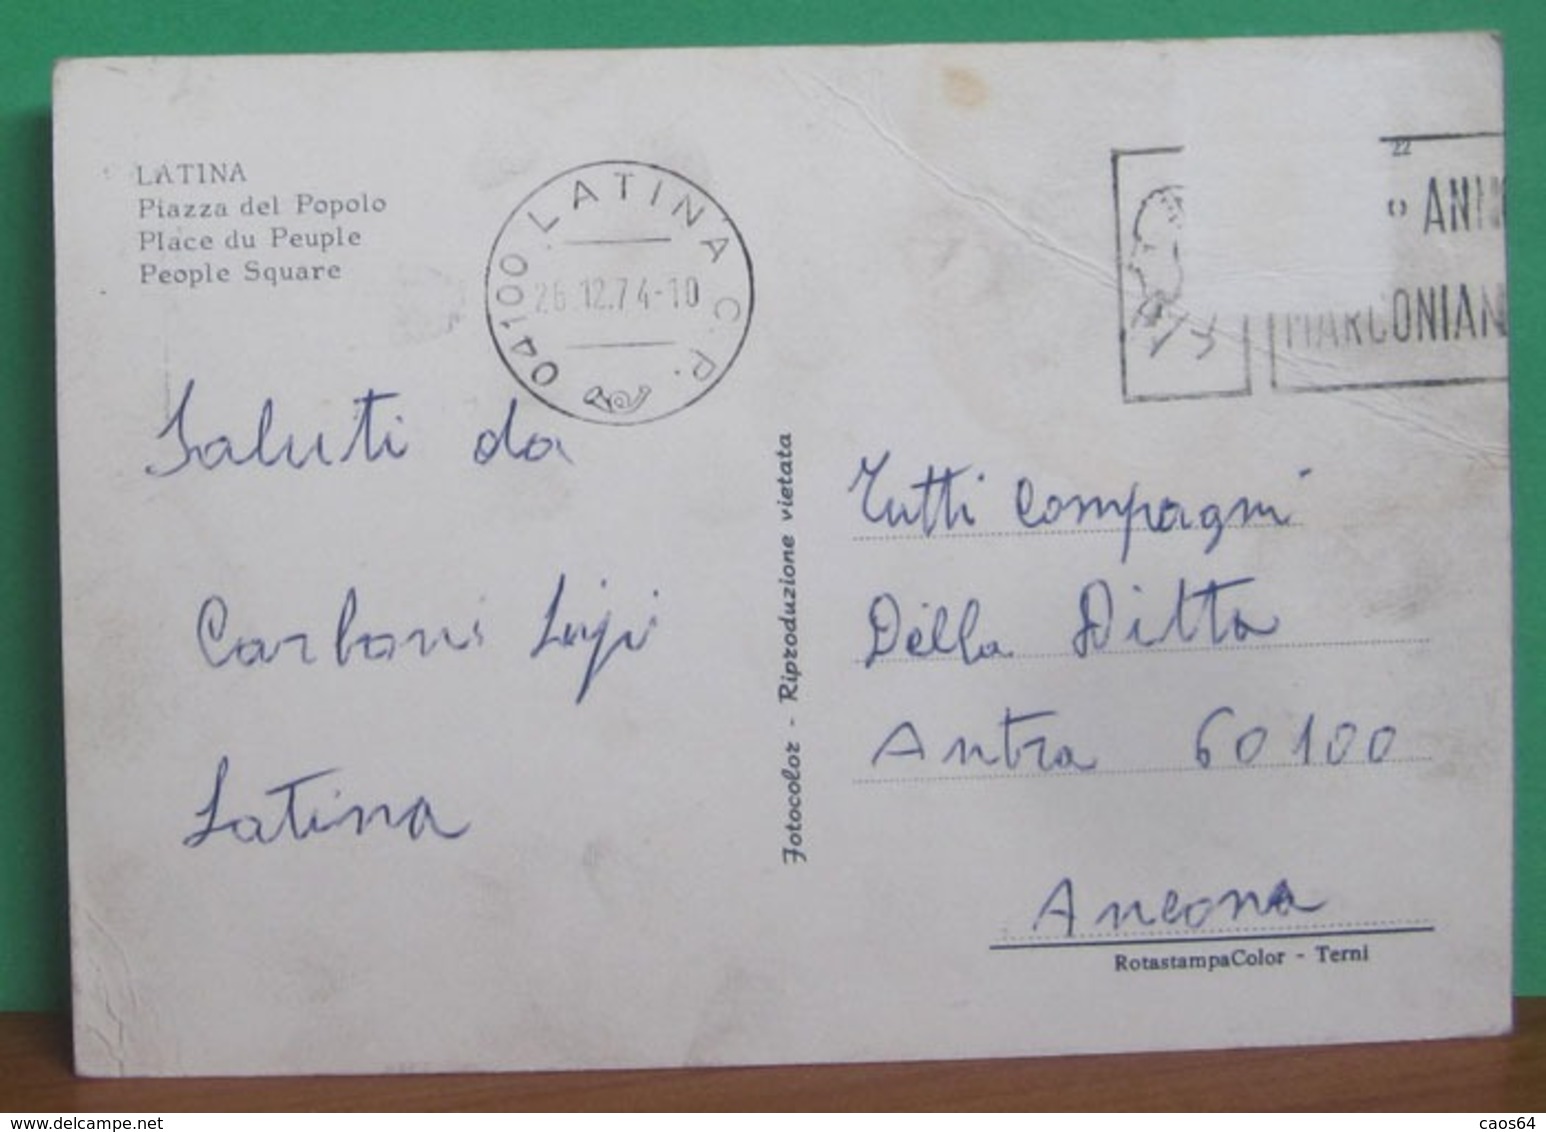 LATINA
Piazza del Popolo
Place du Peuple
People Square
04100 LATINA C.P.
26.12.74-10
22
o ANN
MARCONIAN
Saluti da
Carboni
Latina
Fotocolor - Riproduzione vietata
Tutti Compagni
Della Ditta
Antra 60100
Ancona
RotastampaColor - Terni
https://www.delcampe.net
caos64